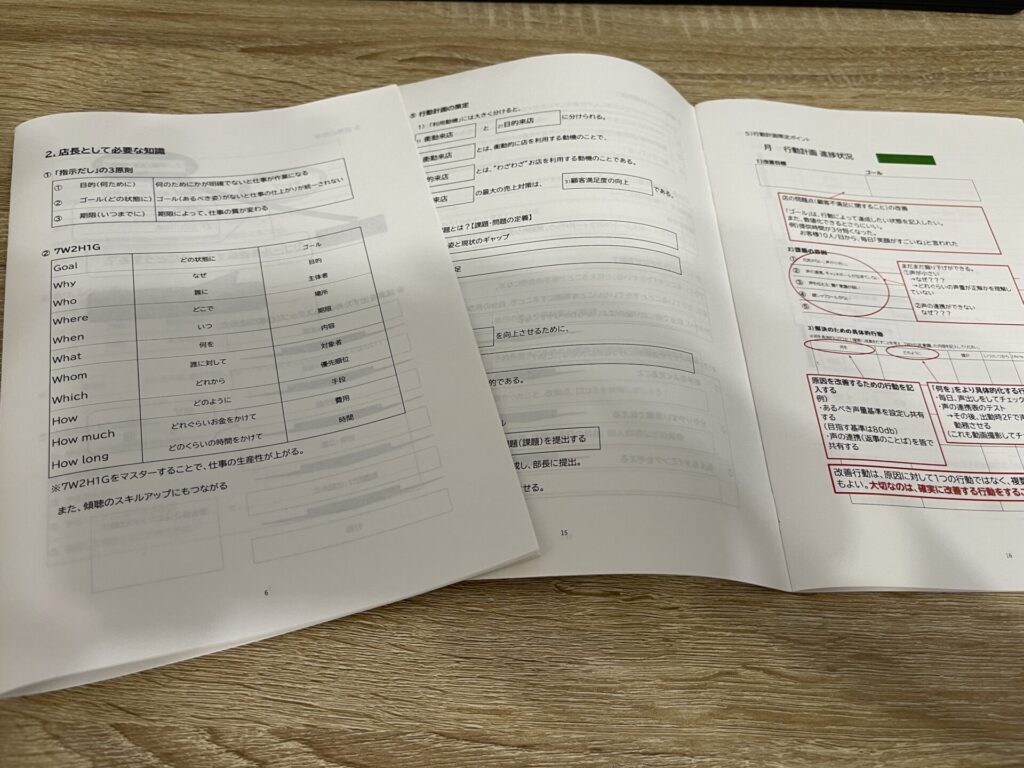 2. 店長として必要な知識
① 「指示だし」の3原則
① 目的(何ために) 何のためにかが明確でないと仕事が作業になる
② ゴール(どの状態に) ゴール(あるべき姿)がないと仕事の仕上がりが統一されない
③ 期限(いつまでに) 期限によって、仕事の質が変わる
② 7W2H1G
Goal どの状態に ゴール
Why なぜ 目的
Who 誰に 主体者
Where どこで 場所
When いつ 期限
What 何を 内容
Whom 誰に対して 対象者
Which どれから 優先順位
How どのように 手段
How much どれぐらいお金をかけて 費用
How long どのくらいの時間をかけて 時間
※7W2H1Gをマスターすることで、仕事の生産性が上がる。
また、傾聴のスキルアップにもつながる
6
⑤ 行動計画の策定
1)「利用動機」には大きく分けると、
衝動来店 と 2)目的来店 に分けられる。
衝動来店 とは、衝動的に店を利用する動機のことで、
的来店 とは、“わざわざ”お店を利用する動機のことである。
の最大の売上対策は、 3)顧客満足度の向上 である。
題とは?【課題・問題の定義】
姿と現状のギャップ
足
を向上させるために、
的である。
ル
題(課題)を提出する
成し、部長に提出。
せる。
15
5)行動計画策定ポイント
月 行動計画 進捗状況
1)改善目標
ゴール
店の問題点(顧客不満足に関すること)の改善
「ゴール」は、行動によって達成したい状態を記入したい。
また、数値化できるとさらにいい。
例)提供時間が3分短くなった。
お客様10人/日から、毎日「笑顔がすごいね」と言われた
①
②
③
④
⑤
まだまだ掘り下げができる。
①声が小さい
→なぜ???
→どれぐらいの声量が正解かを理解し
ていない
②声の連携ができない
なぜ???
3)解決のための具体的行動
何を どのように 誰が
原因を改善するための行動を記
入する
例)
・あるべき声量基準を設定し共有
する
(目指す基準は80db)
・声の連携(返事のことば)を皆で
共有する
「何を」をより具体的化する行
・毎日、声出しをしてチェック
・声の連携表のテスト
→その後、出勤時2Fで声
勤務させる
(これも動画撮影してチ
改善行動は、原因に対して1つの行動ではなく、複数
もよい。大切なのは、確実に改善する行動をするこ
16